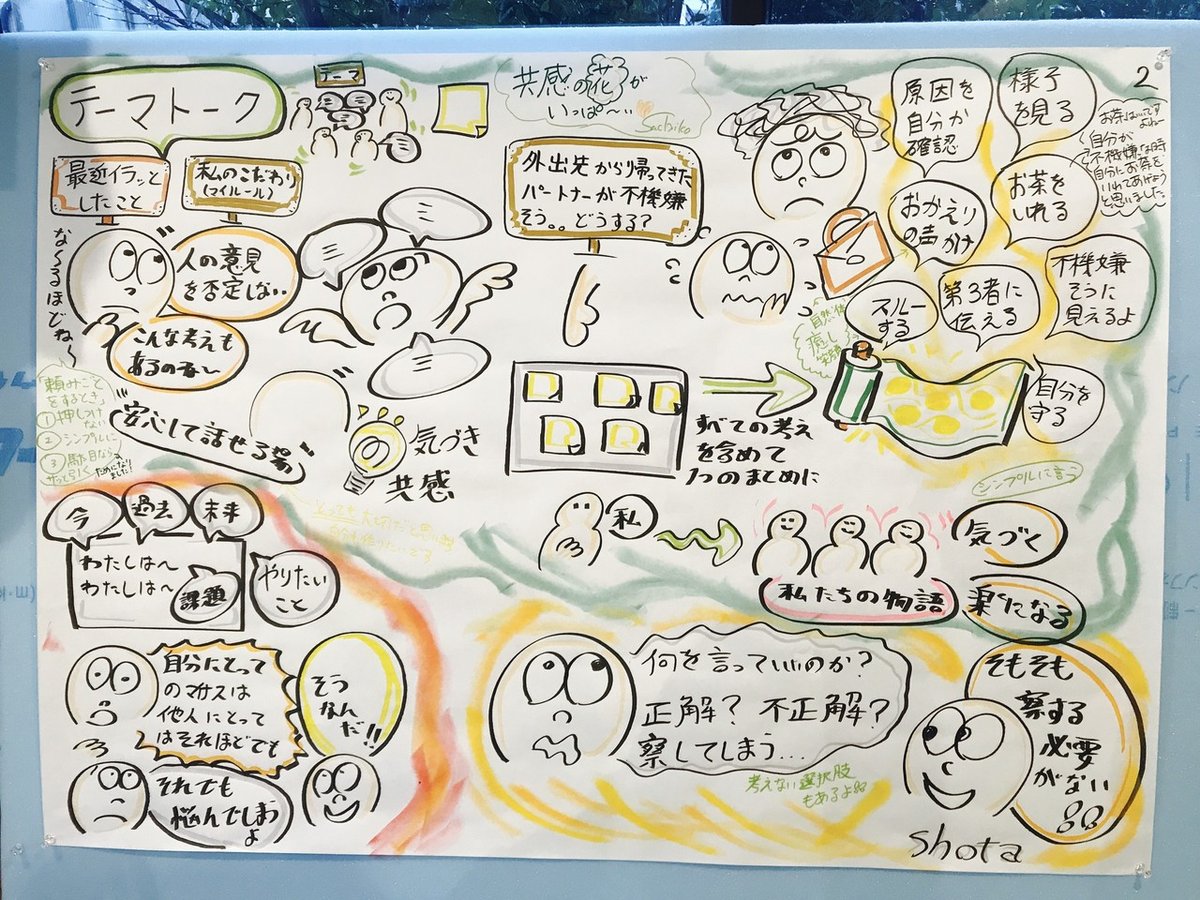 テーマトーク
テーマ
最近イラッと
したこと
私のこだわり
(マイルール)
な〜るほどね〜
人の意見
を否定しない..
こんな考えも
あるのね〜
「頼みごと
をするとき」
① 押しつけ
ない
② シンプルに
③ 馬太目なら
サッと引く
ためになり
ました!
安心して話せる場
気づき
共感
共感の花が
いっぱ〜い
Sachiko
外出先から帰ってきた
パートナーが不機嫌
そう。。どうする?
原因を
自分か
確認
様子
を見る
2
お茶はいいです
よねー
自分が
不機嫌な時
自分にお茶を
いれてあげよう
と思いました
お茶を
いれる
おかえり
の声かけ
不機嫌
そうに
見えるよ
第3者に
伝える
スルー
する
自分を
守る
癒し
すべての考え
を含めて
1つのまとめに
シンプルに言う
私
私たちの物語
気づく
楽になる
今
過去
未来
わたしは〜
わたしは〜
課題
やりたい
こと
自分にとって
のマイナスは
他人にとって
はそれほどでも
そう
なん
だ!!
それでも
悩んでしまう
よ
何を言っていいのか?
正解? 不正解?
察してしまう...
考えない選択肢
もあるよ
そもそも
察する
必要
がない
shota